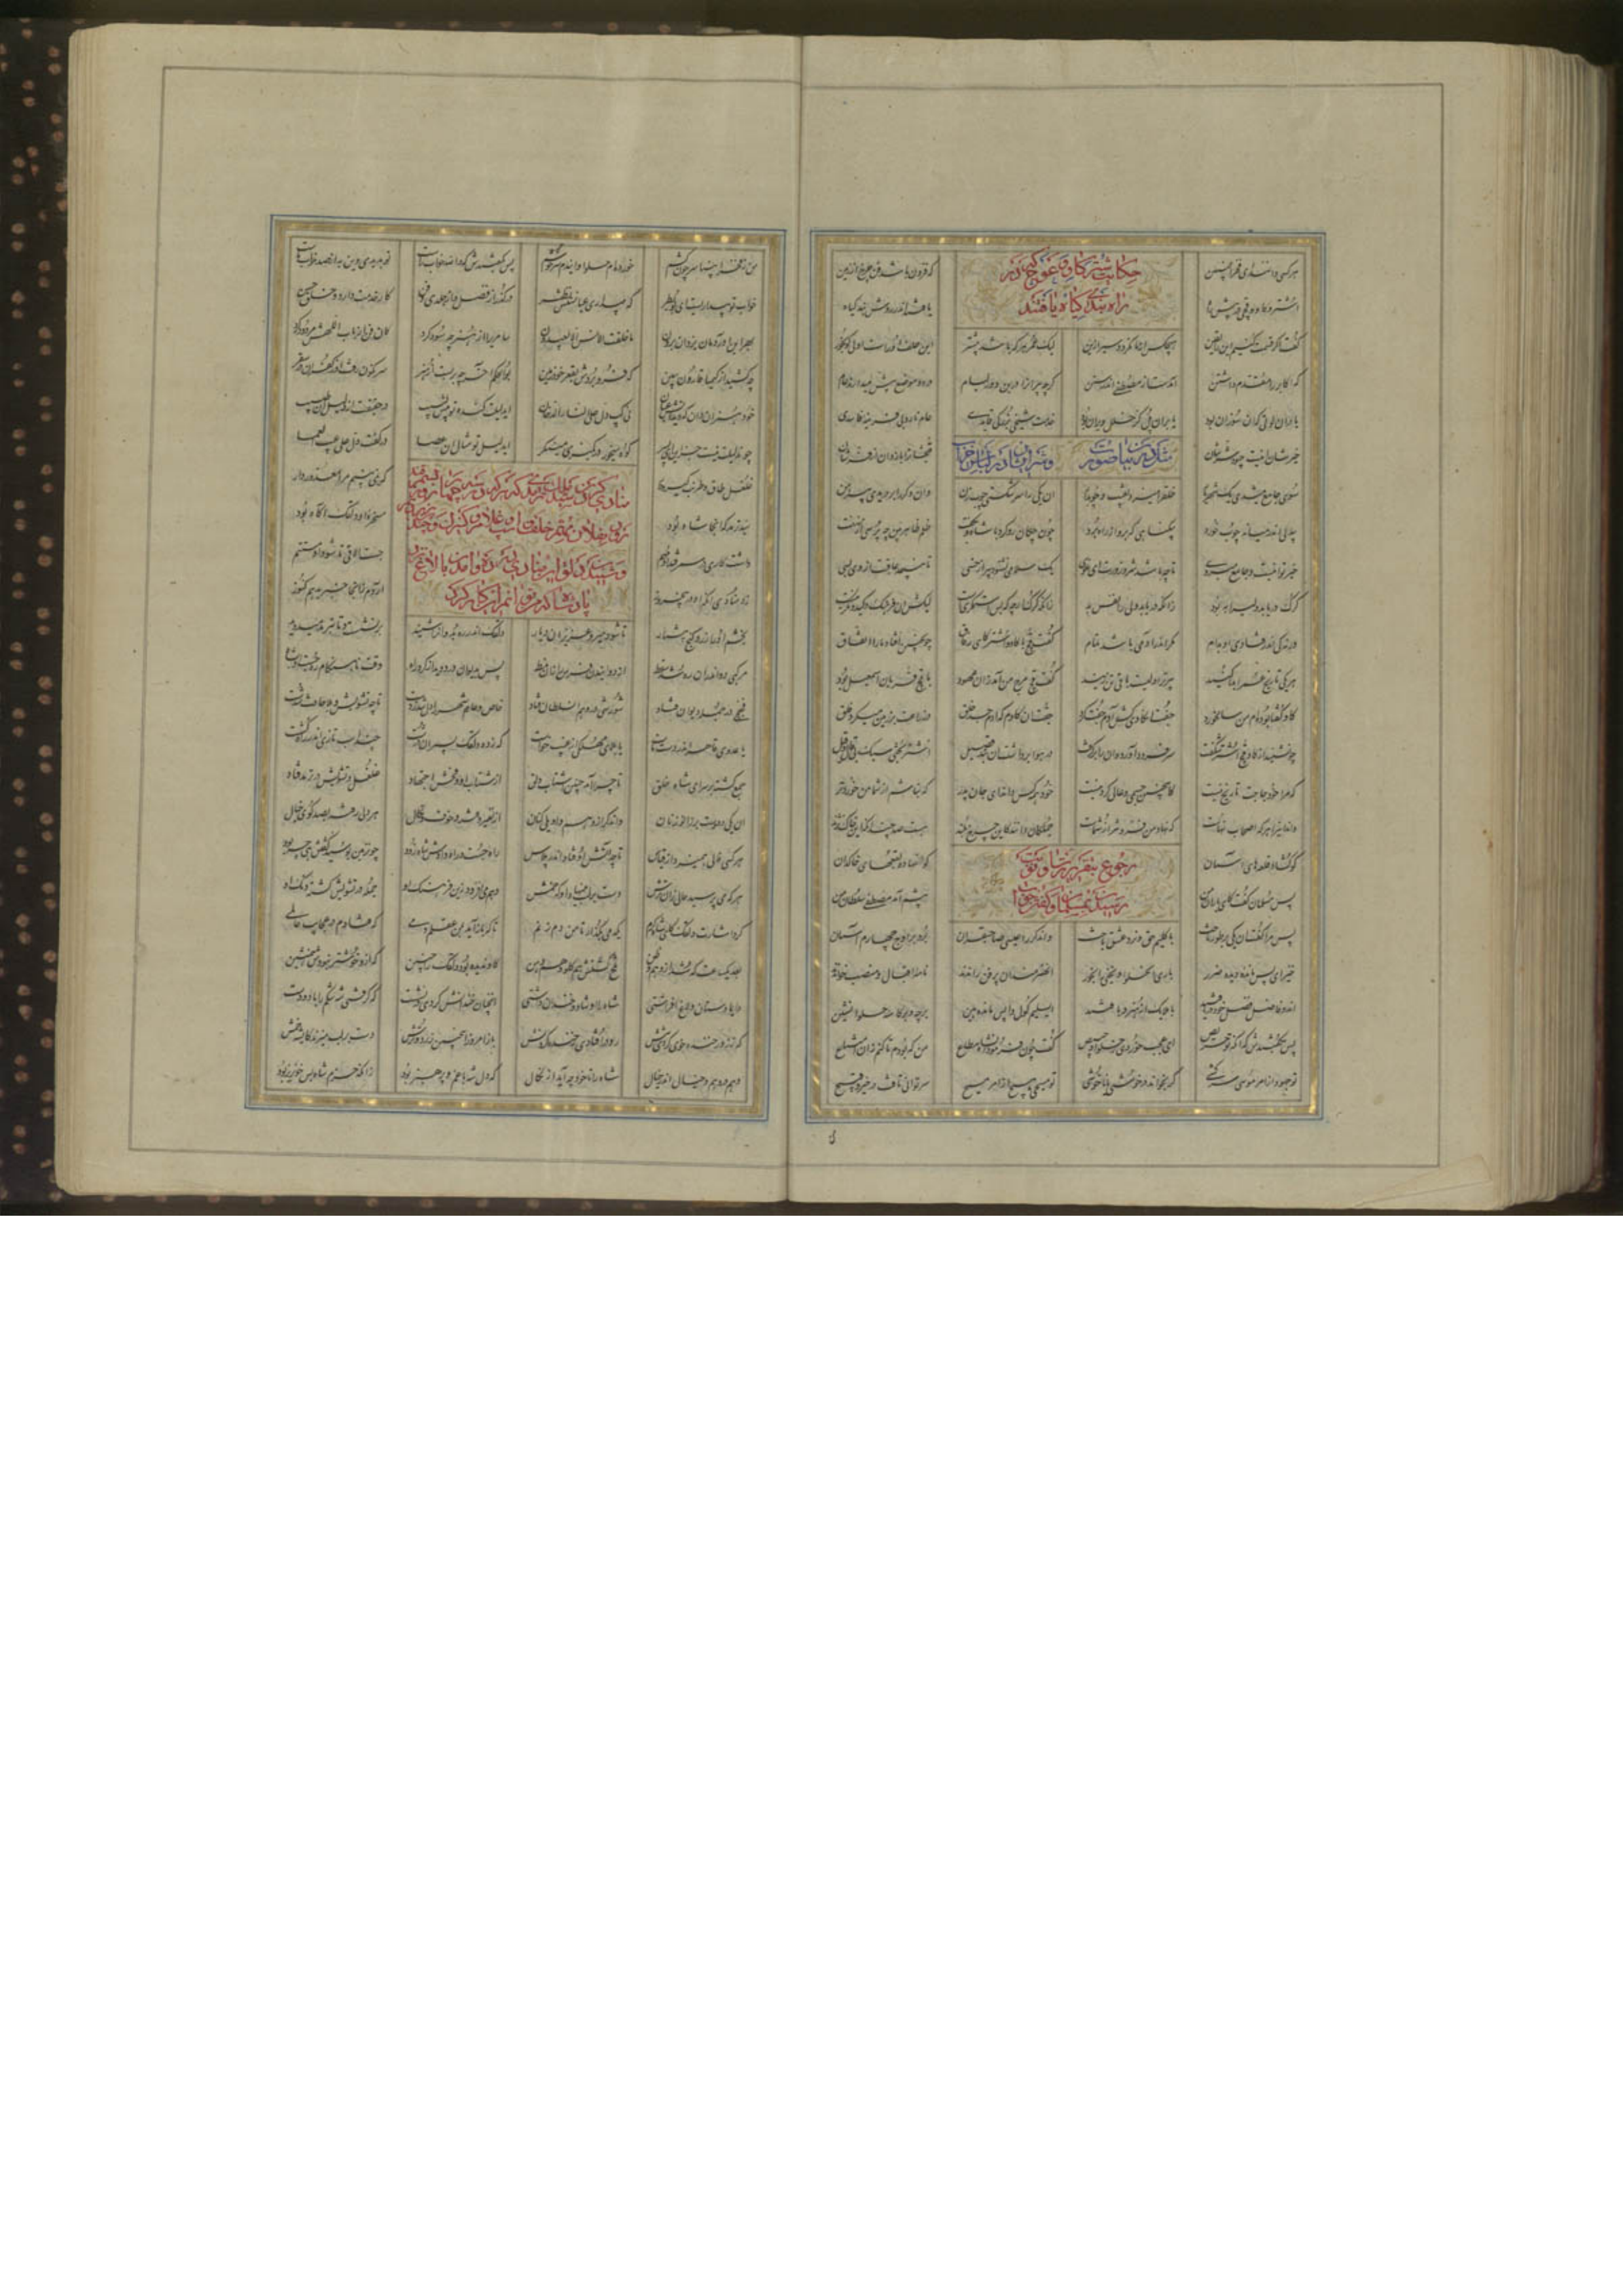 حکایت شتر و گاو و قوچ که در
راه بند گیاه یافتند
اشتر و گاو و قچی در پیش راه یافتند اندر روش بند گیاه
گفت قچ بخش ار کنیم این را یقین هیچکس از ما نگردد سیر ازین لیک عمر هر که باشد بیشتر این علف او راست اولی گو بخور
که اکابر را مقدم داشتن آمدست از مصطفی اندر سنن گرچه پیران را درین دور لئام در دو موضع پیش میدارند عام
یا در آن لوتی که آن سوزان بود یا بر آن پل کز خلل ویران بود خدمت شیخی بزرگی قایدی عام نارد بی قرینه فاسدی
خیرشان اینست چه بود شرشان قبحشان را باز دان از فرشان
سوی جامع میشد آن یک شهریار خلق را میزد نقیب و چوبدار آن یکی را سر شکستی چوب زن وان دگر را بر دریدی پیرهن
بیدلی اندر میانه چوب خورد بیگناهی که برو از راه برد خون چکان رو کرد با شاه و بگفت ظلم ظاهر بین چه پرسی از نهفت
خیر تو اینست و جامع میروی تا چه باشد شر و وزرت ای غوی یک سلامی نشنود پیر از خسی تا نپیچد عاقبت از وی بسی
گرگ دریابد ولی را به بود زانکه دریابد ولی را نفس بد زانکه گرگ ارچه که بس استمگریست لیکش آن فرهنگ و کید و مکر نیست
ورنه کی اندر فتادی او بدام مکر اندر آدمی باشد تمام گفت قچ با گاو و اشتر کای رفاق چون چنین افتاد ما را اتفاق
هر یکی تاریخ عمر ابدا کنید پیرتر اولیست باقی تن زنید گفت قچ مرج من اندر آن عهود با قچ قربان اسمعیل بود
گاو گفتا بوده ام من سالخورد جفت آن گاوی کش آدم جفت کرد جفت آن گاوم که آدم جد خلق در زراعت بر زمین میکرد فلق
چون شنید از گاو و قچ اشتر شگفت سر فرود آورد و آن را برگرفت در هوا برداشت آن بند قصیل اشتر بختی سبک بی قال و قیل
که مرا خود حاجت تاریخ نیست کاینچنین جسمی و عالی گردنیست خود همه کس داند ای جان پدر که نباشم از شما من خوردتر
داند این را هر که ز اصحاب نهاست که نهاد من فزونتر از شماست جملگان دانند کاین چرخ بلند هست صد چندانکه این خاک نژند
کو گشاد رقعه های آسمان کو نهاد بقعه های خاکدان
پس مسلمان گفت کای یاران من پیشم آمد مصطفی سلطان من
پس مرا گفت آن یکی بر طور تاخت با کلیم حق و نرد عشق باخت وان دگر را عیسی صاحبقران برد بر اوج چهارم آسمان
خیز ای پس مانده دیده ضرر باری آن حلوا و یخنی را بخور آن هنرمندان پر فن راندند نامه اقبال و منصب خواندند
آن دو فاضل فضل خود دریافتند با ملایک از هنر دربافتند ای سلیم گول واپس مانده هین برجه و بر کاسه حلوا نشین
پس بگفتندش که آنگه تو حریص ای عجب خوردی ز حلوا و خبیص گفت چون فرمود آن شاه مطاع من که بودم تا کنم زان امتناع
تو جهود از امر موسی سرکشی گر بخواند در خوشی یا ناخوشی تو مسیحی هیچ از امر مسیح سر توانی تافت در خیر و قبیح
من ز فخر انبیا سر چون کشم خورده ام حلوا و این دم سرخوشم پس بگفتندش که والله خواب راست تو بدیدی وین به از صد خواب ماست
خواب تو بیداریست ای بوبطر که به بیداری عیانستش اثر درگذر از فضل و از جلدی و فن کار خدمت دارد و خلق حسن
بهر این آوردمان یزدان برون ما خلقت الانس الا یعبدون سامری را آن هنر چه سود کرد کان فن از باب اللهش مردود کرد
چه کشید از کیمیا قارون ببین که فرو بردش بقعر خود زمین بوالحکم آخر چه بربست از هنر سرنگون رفت او ز کفران در سقر
خود هنر آن دان که دید آتش عیان نی گپ دل علی النار الدخان ای دلیلت گنده تر پیش لبیب در حقیقت از دلیل آن طبیب
چون دلیلت نیست جز این ای پسر گوه میخور در کمیزی مینگر ای دلیل تو مثال آن عصا در کفت دل علی عیب العمی
غلغل و طاق و طرنب و گیر و دار که نمی بینم مرا معذور دار
سید ترمد که آنجا شاه بود مسخره او دلقک آگاه بود
داشت کاری در سمرقند او مهم جست الاقی تا شود او مستتم
زد منادی هر که او در پنج روز آردم زانجا خبر بدهم کنوز
بخشم او را زر و گنج بیشمار تا شود میر و عزیز اندر دیار دلقک اندر ده بد و آن را شنید برنشست و تا بترمد میدوید
مرکبی دو اندر آن ره شد سقط از دوانیدن فرس را زان نمط پس بدیوان در دوید از گرد راه وقت ناهنگام ره جست او بشاه
فجفجی در جمله دیوان فتاد شورشی در وهم آن سلطان فتاد خاص و عام شهر را دل شد ز دست تا چه تشویش و بلا حادث شدست
یا بلای مهلکی از غیب خاست که ز ده دلقک بسیران درشت چند اسب تازی اندر راه کشت
جمع گشته بر سرای شاه خلق تا چرا آمد چنین اشتاب دلق از شتاب او و فحش اجتهاد غلغل و تشویش در ترمد فتاد
آن یکی دو دست بر زانو زنان وان دگر از وهم واویلی کنان از نفیر و فتنه و خوف نکال هر دلی رفته بصد کوی خیال
هر کسی فالی همیزد از قیاس تا چه آتش اوفتاد اندر پلاس راه جست و راه دادش شاه زود چون زمین بوسید گفتش هی چه بود
هر که می پرسید حالی زان ترش دست بر لب مینهاد او که خمش وهم می افزود زین فرهنگ او جمله در تشویش گشته دنگ او
کرد اشارت دلق کای شاه کرم یکدمی بگذار تا من دم زنم تا که باز آید بمن عقلم دمی که فتادم در عجایب عالمی
بعد یک ساعت که شه از وهم و ظن تلخ گشتش هم گلو و هم دهن که ندیده بود دلقک را چنین که ازو خوشتر نبودش همنشین
دایما دستان و لاغ افراشتی شاه را او شاد و خندان داشتی آنچنان خندانش کردی در نشست که گرفتی شه شکم را با دو دست
که ز زور خنده خوی کردی تنش رو درافتادی ز خنده کردنش باز امروز اینچنین زرد و ترش دست بر لب میزند کای شه خمش
وهم در وهم و خیال اندر خیال شاه را تا خود چه آید از نکال که دل شه با غم و پرهیز بود زانکه خرمشاه بس خونریز بود